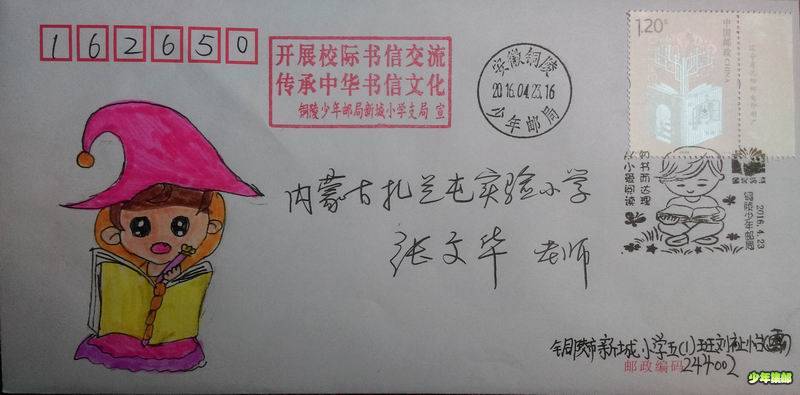 162650
开展校际书信交流
传承中华书信文化
铜陵少年邮局新城小学支局 宣
安徽铜陵
2016.04.23.16
少年邮局
1.20元
中国邮政
CHINA
内蒙古扎兰屯实验小学
张文华 老师
知书而达理
从小爱阅读
2016.4.23
铜陵少年邮局
铜陵市新城小学五(1)班
邮政编码 244002
少年集邮